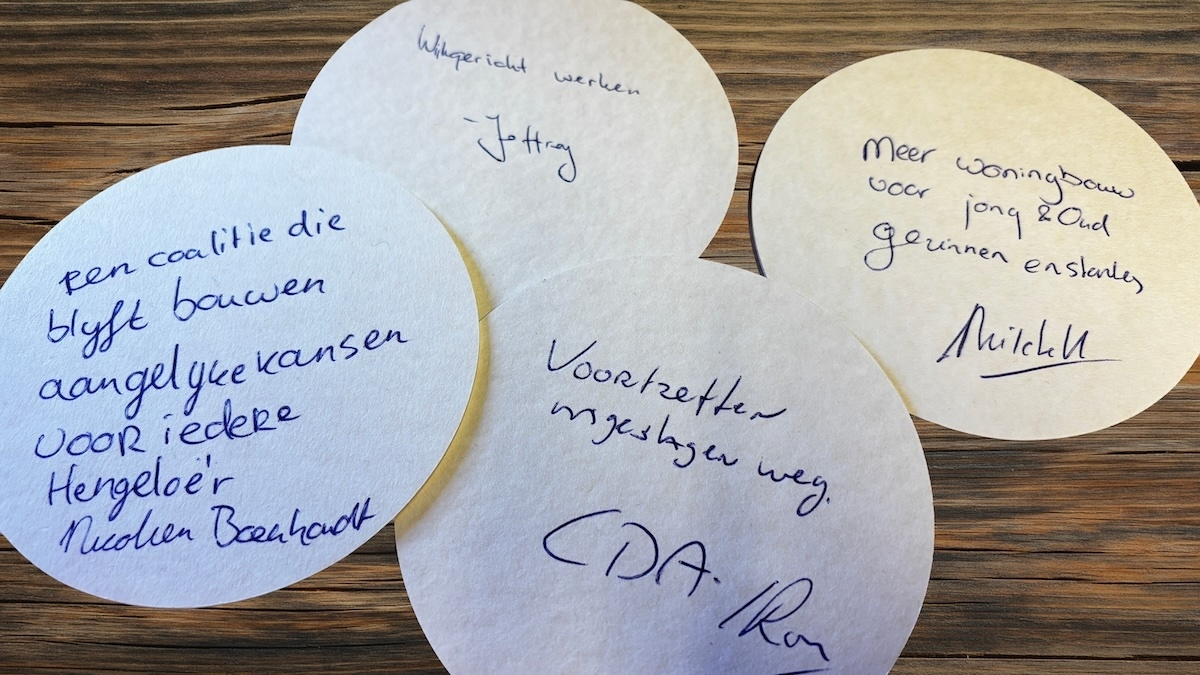 Wijkgericht werken
- Joffrey
Meer woningbouw
voor jong & Oud
gezinnen en starters
Mitchell
een coalitie die
blyft bouwen
aan gelyke kansen
voor iedere
Hengeloë'r
Nicolien
Voortzetten
ingeslagen weg.
CDA. Ron